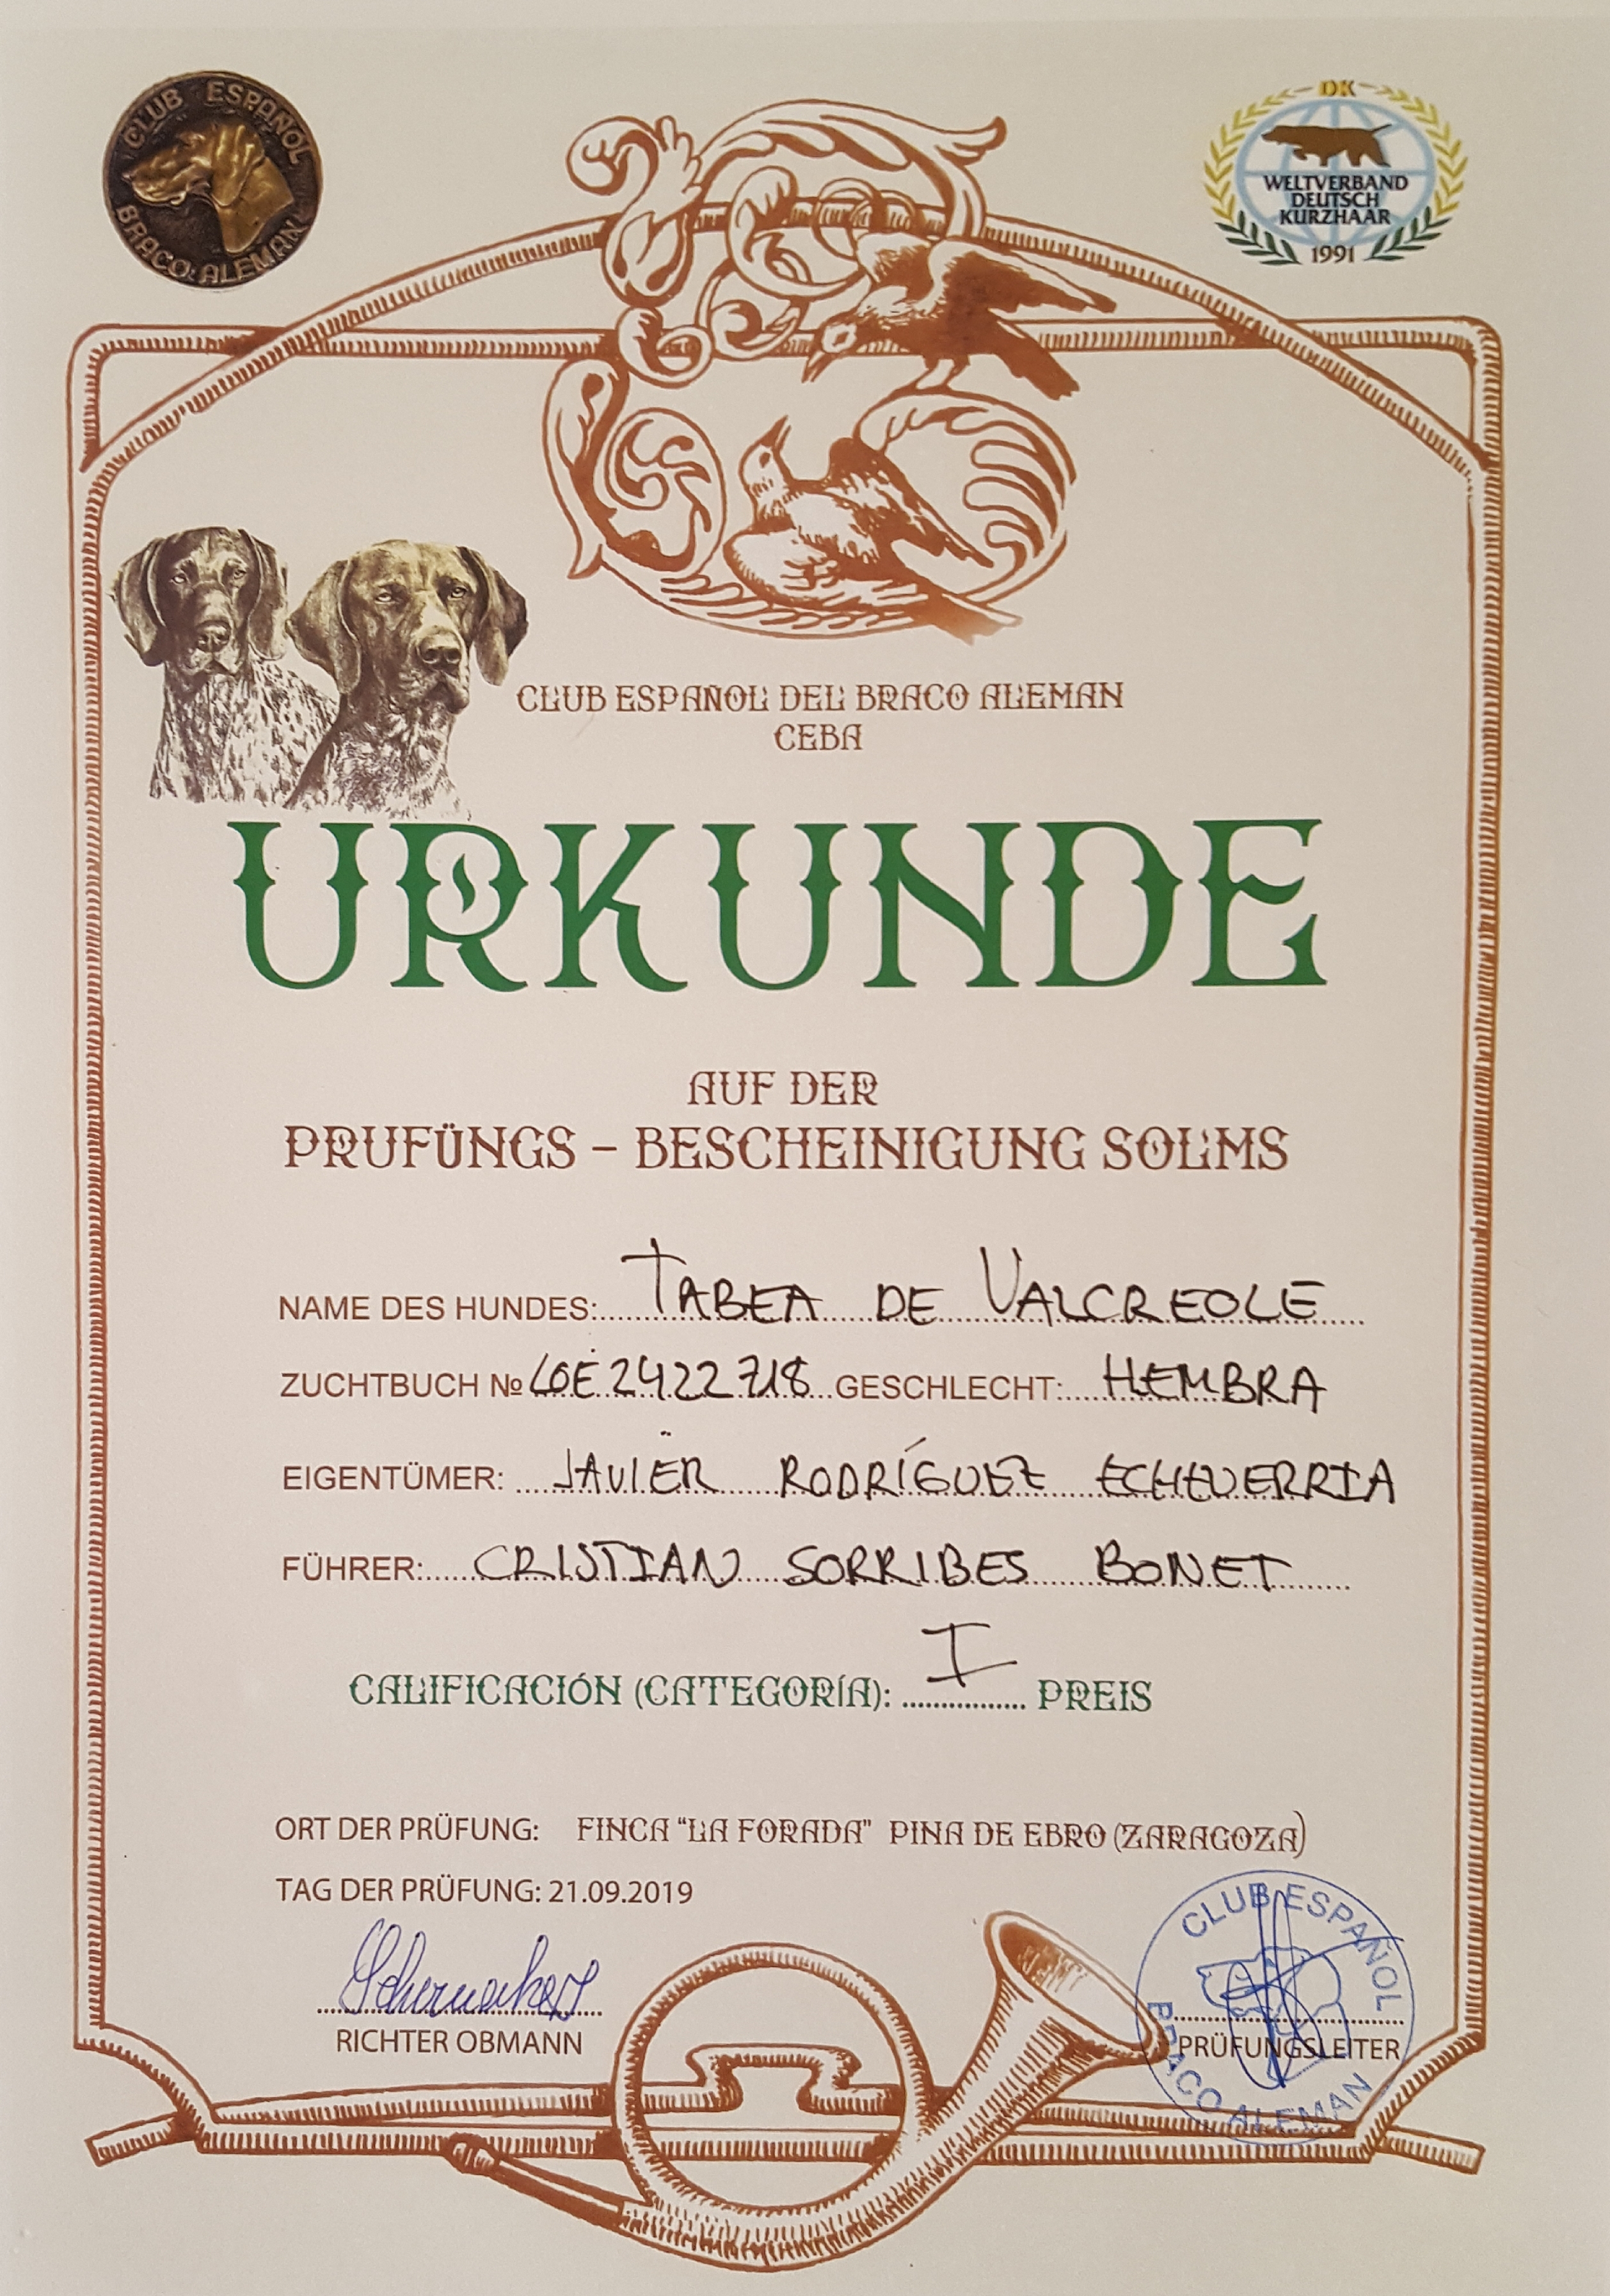 CLUB ESPAÑOL
BRACO ALEMAN
DK
WELTVERBAND
DEUTSCH
KURZHAAR
1991
CLUB ESPAÑOL DEL BRACO ALEMAN
CEBA
URKUNDE
AUF DER
PRUFÜNGS - BESCHEINIGUNG SOLMS
NAME DES HUNDES: TABEA DE VALCREOLE
ZUCHTBUCH № LOE 2422718 GESCHLECHT: HEMBRA
EIGENTÜMER: JAVIER RODRÍGUEZ ECHEVERRIA
FÜHRER: CRISTIAN SORRIBES BONET
CALIFICACIÓN (CATEGORÍA): I PREIS
ORT DER PRÜFUNG: FINCA "LA FORADA" PINA DE EBRO (ZARAGOZA)
TAG DER PRÜFUNG: 21.09.2019
RICHTER OBMANN
PRÜFUNGSLEITER
CLUB ESPAÑOL
BRACO ALEMAN